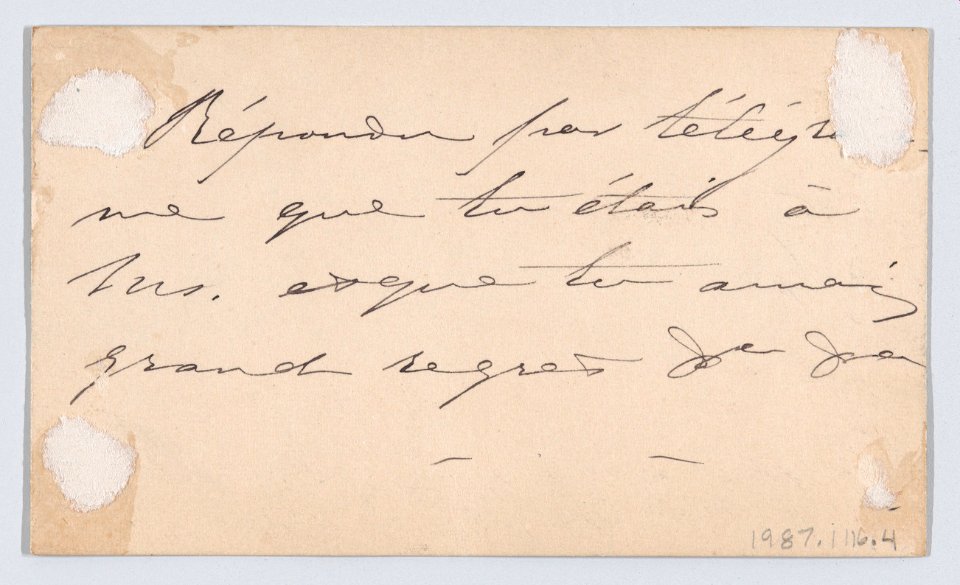 Répondu par télégra-
me que tu étais à
et que tu avais
grand regret
1987.1116.4